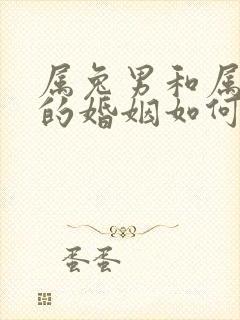 属兔男和属
的婚姻如何
蛋蛋